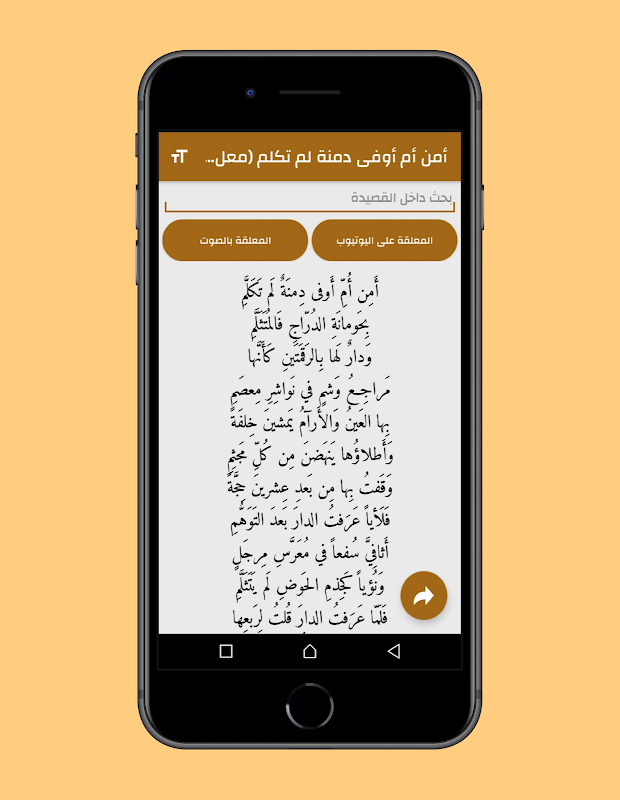 أمن أم أوفى دمنة لم تكلم (معل...
بحث داخل القصيدة
المعلقة على اليوتيوب
المعلقة بالصوت
أَمِن أُمِّ أَوفى دِمنَةٌ لَم تَكَلَّمِ
بِحَومانَةِ الدُرّاجِ فَالمُتَثَلَّمِ
وَدارٌ لَها بِالرَقمَتَينِ كَأَنَّها
مَراجِعُ وَشمٍ في نَواشِرِ مِعصَمِ
بِها العَينُ وَالأَرآمُ يَمشينَ خِلفَةً
وَأَطلاؤُها يَنهَضنَ مِن كُلِّ مَجثِمِ
وَقَفتُ بِها مِن بَعدِ عِشرينَ حِجَّةً
فَلَأياً عَرَفتُ الدارَ بَعدَ التَوَهُّمِ
أَثافِيَّ سُفعاً في مُعَرَّسِ مِرجَلٍ
وَنُؤياً كَجِذمِ الحَوضِ لَم يَتَثَلَّمِ
فَلَمّا عَرَفتُ الدارَ قُلتُ لِرَبعِها